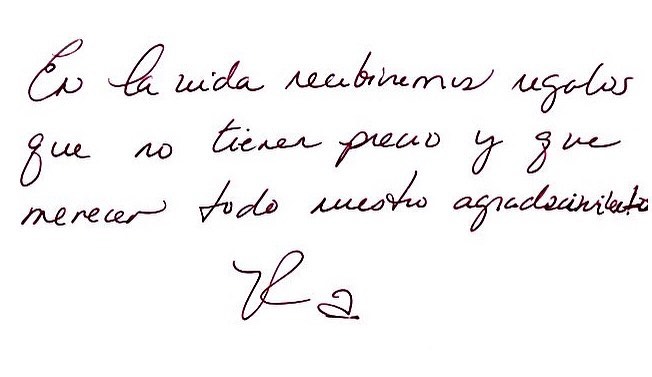 En la vida recibiremos regalos
que no tienen precio y que
merecen todo nuestro agradecimiento